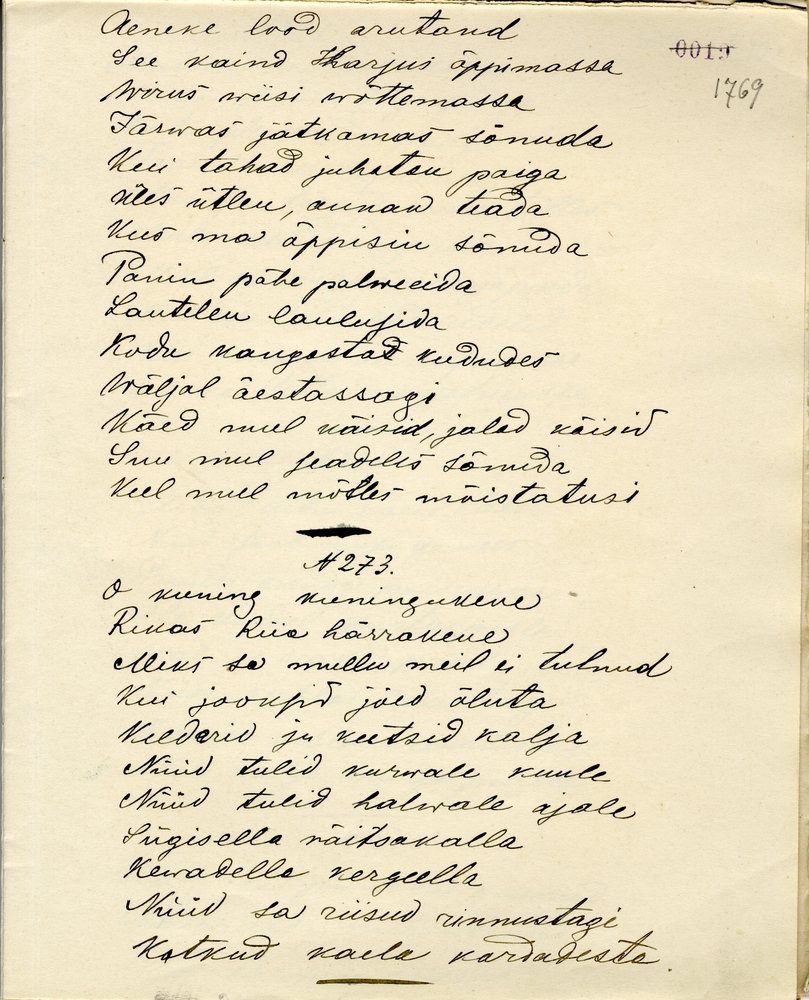 Aeneke lood arutand
0019
See käind Harjus õppimassa
1769
Wirus wiisi wõttemassa
Järwas jätkamas sõnuda
Kui tahad juhatsu paiga
Üles ütlen, annan teada
Kus ma õppisin sõnuda
Panin pähe palweeida
Lautelen laulusida
Kodu kangastad kududes
Wäljal äestassagi
Käed mul käisid, jalad käisid
Suu mul seadelis sõnuda
Keel mul mõtles mõistatusi
N 273.
O kuning kuningukene
Rikas Riia härrakene
Miks sa mullu meil ei tulnud
Kui jooksid jõed õluta
Kelderid ju keetsid kalja
Nüüd tulid kurwale kuule
Nüüd tulid halwale ajale
Sügisella näitsakalla
Kewadella kergeella
Nüüd sa riisud rinnustagi
Katkud kaela kardadesta.